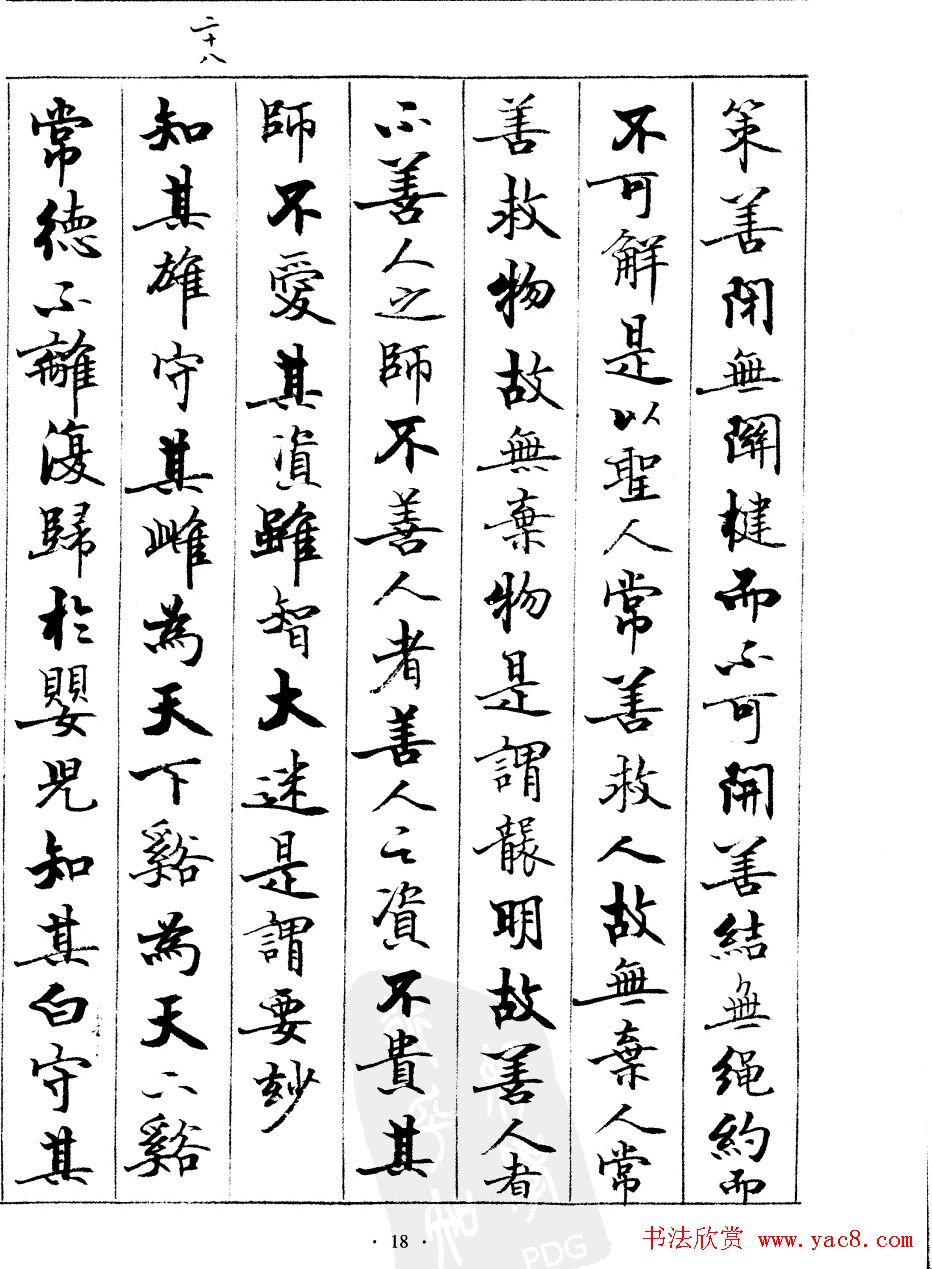 二十八
策善閉無關楗而不可開善結無繩約而
不可解是以聖人常善救人故無棄人常
善救物故無棄物是謂襲明故善人者
不善人之師不善人者善人之資不貴其
師不愛其資雖智大迷是謂要玅
知其雄守其雌為天下谿為天下谿
常德不離復歸於嬰兒知其白守其
· 18 ·
PDG
书法欣赏 www.yac8.com